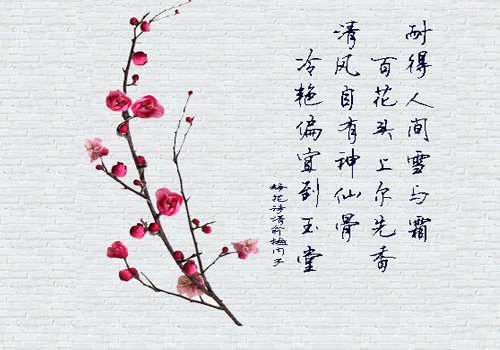 耐得人间雪与霜
百花头上尔先香
清风自有神仙骨
冷艳偏宜到玉堂
梅花诗清俞樾内子